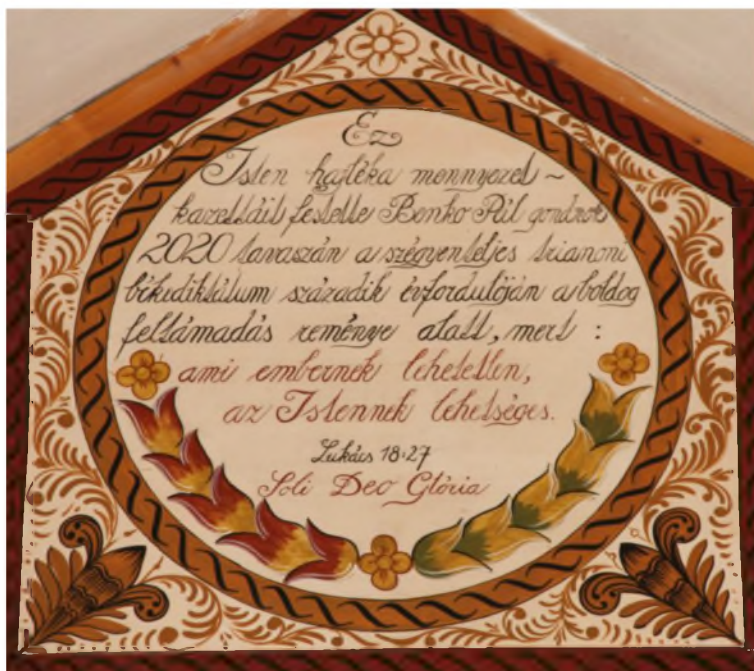 Ez
Isten hajléka mennyezet-
kazettáit festette Benkő Pál gondnok
2020 tavaszán a szégyenteljes trianoni
békediktátum századik évfordulóján a boldog
feltámadás reménye alatt, mert :
ami embernek lehetetlen,
az Istennek lehetséges.
Lukács 18:27
Soli Deo Glória